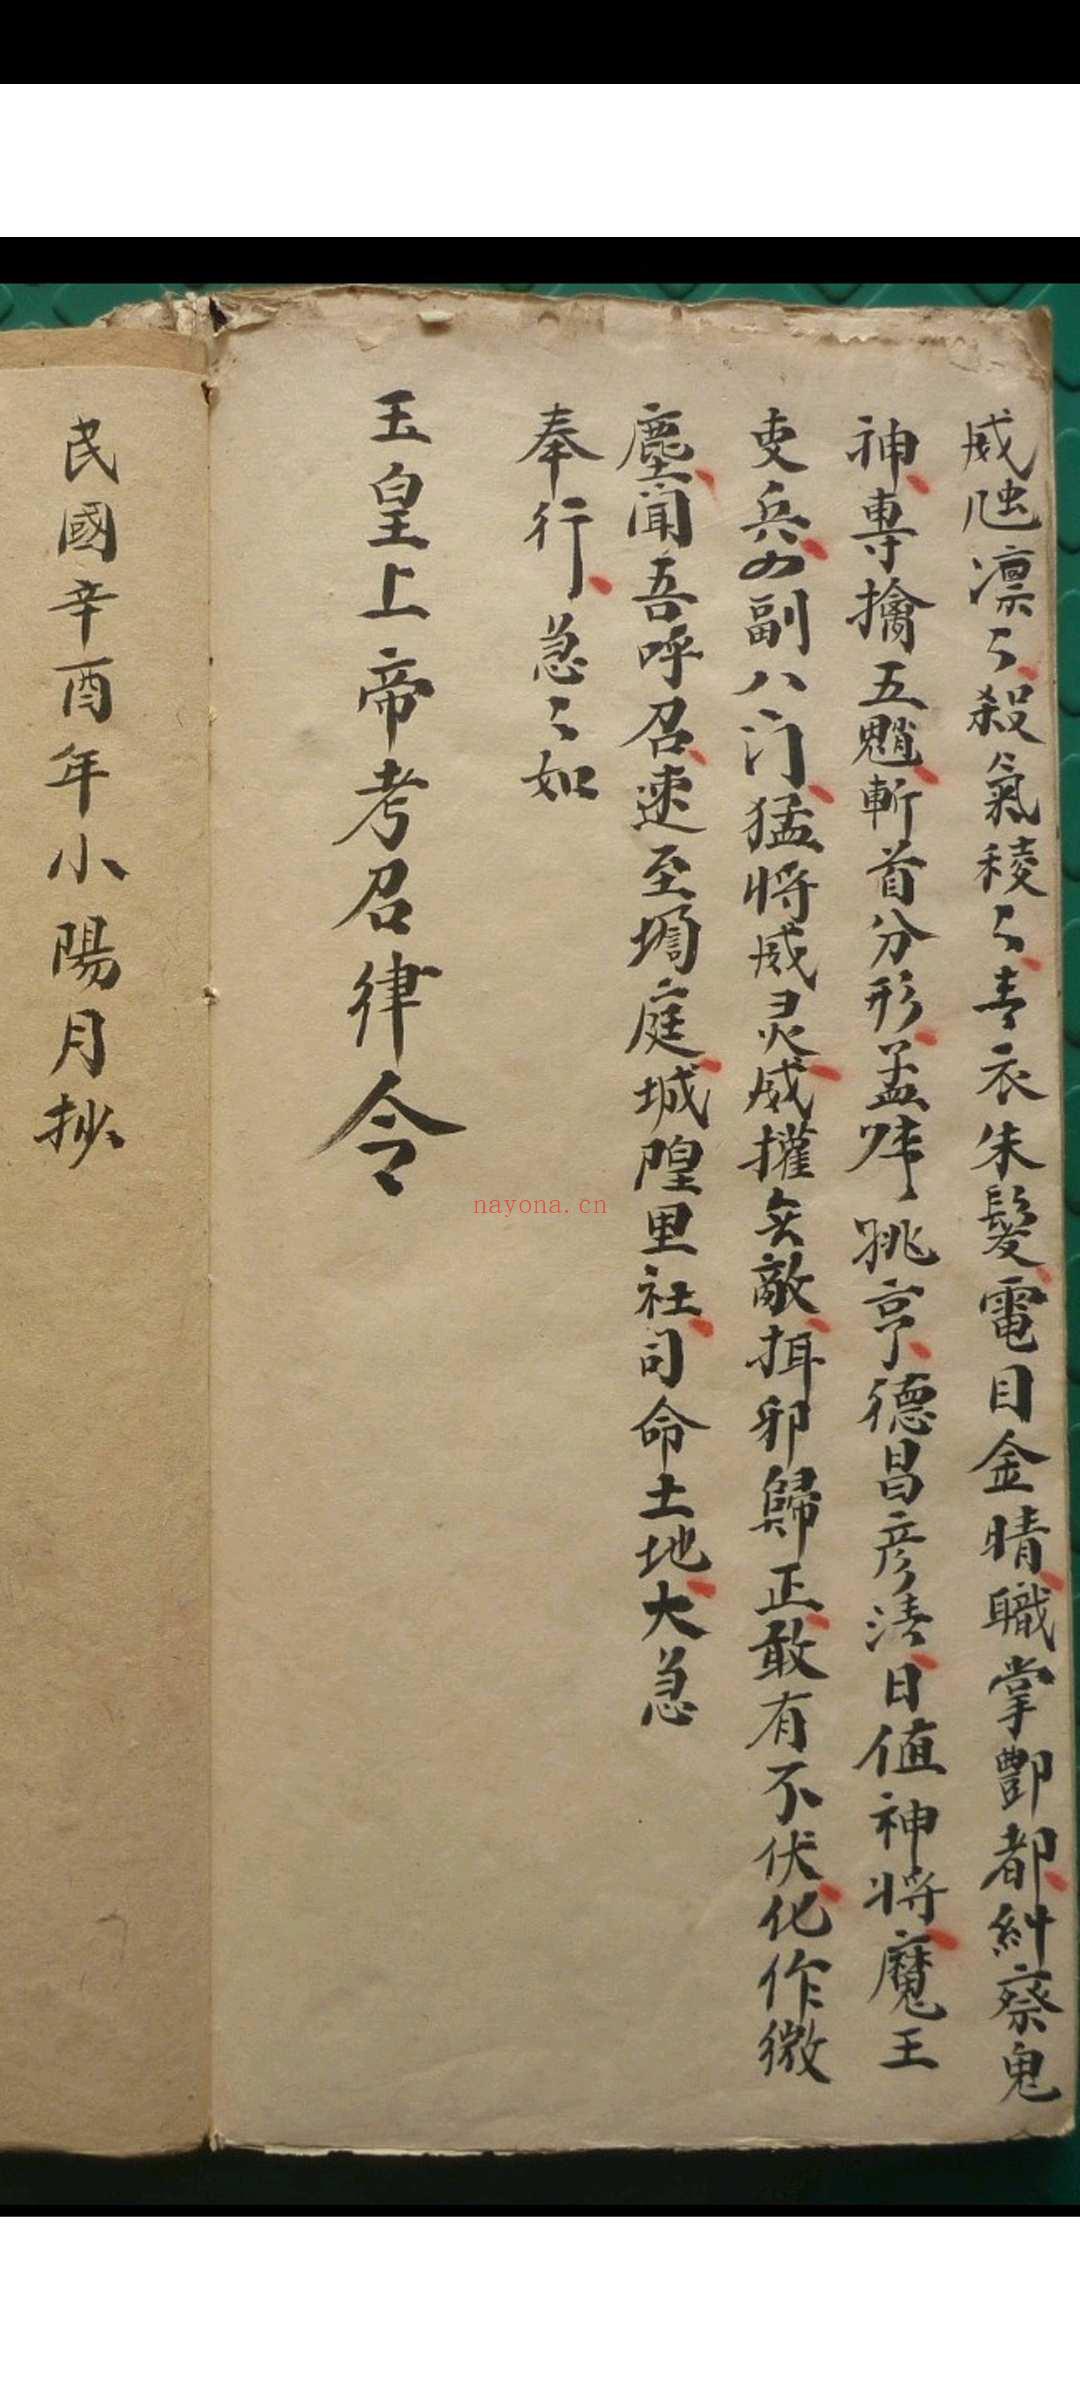 威⿰虫凛〻殺氣稜〻青衣朱髮電目金晴職掌酆都糾察鬼
神專擒五魈斬首分形孟 姚亨德昌彦清日值神將魔王
吏兵四副八门猛將威灵威權 敵 邪歸正敢有不伏化作微
塵聞吾呼召速至 庭城隍里社司命土地大急
奉行急〻如
玉皇上帝考召律令
民國辛酉年小陽月抄
nayona.cn